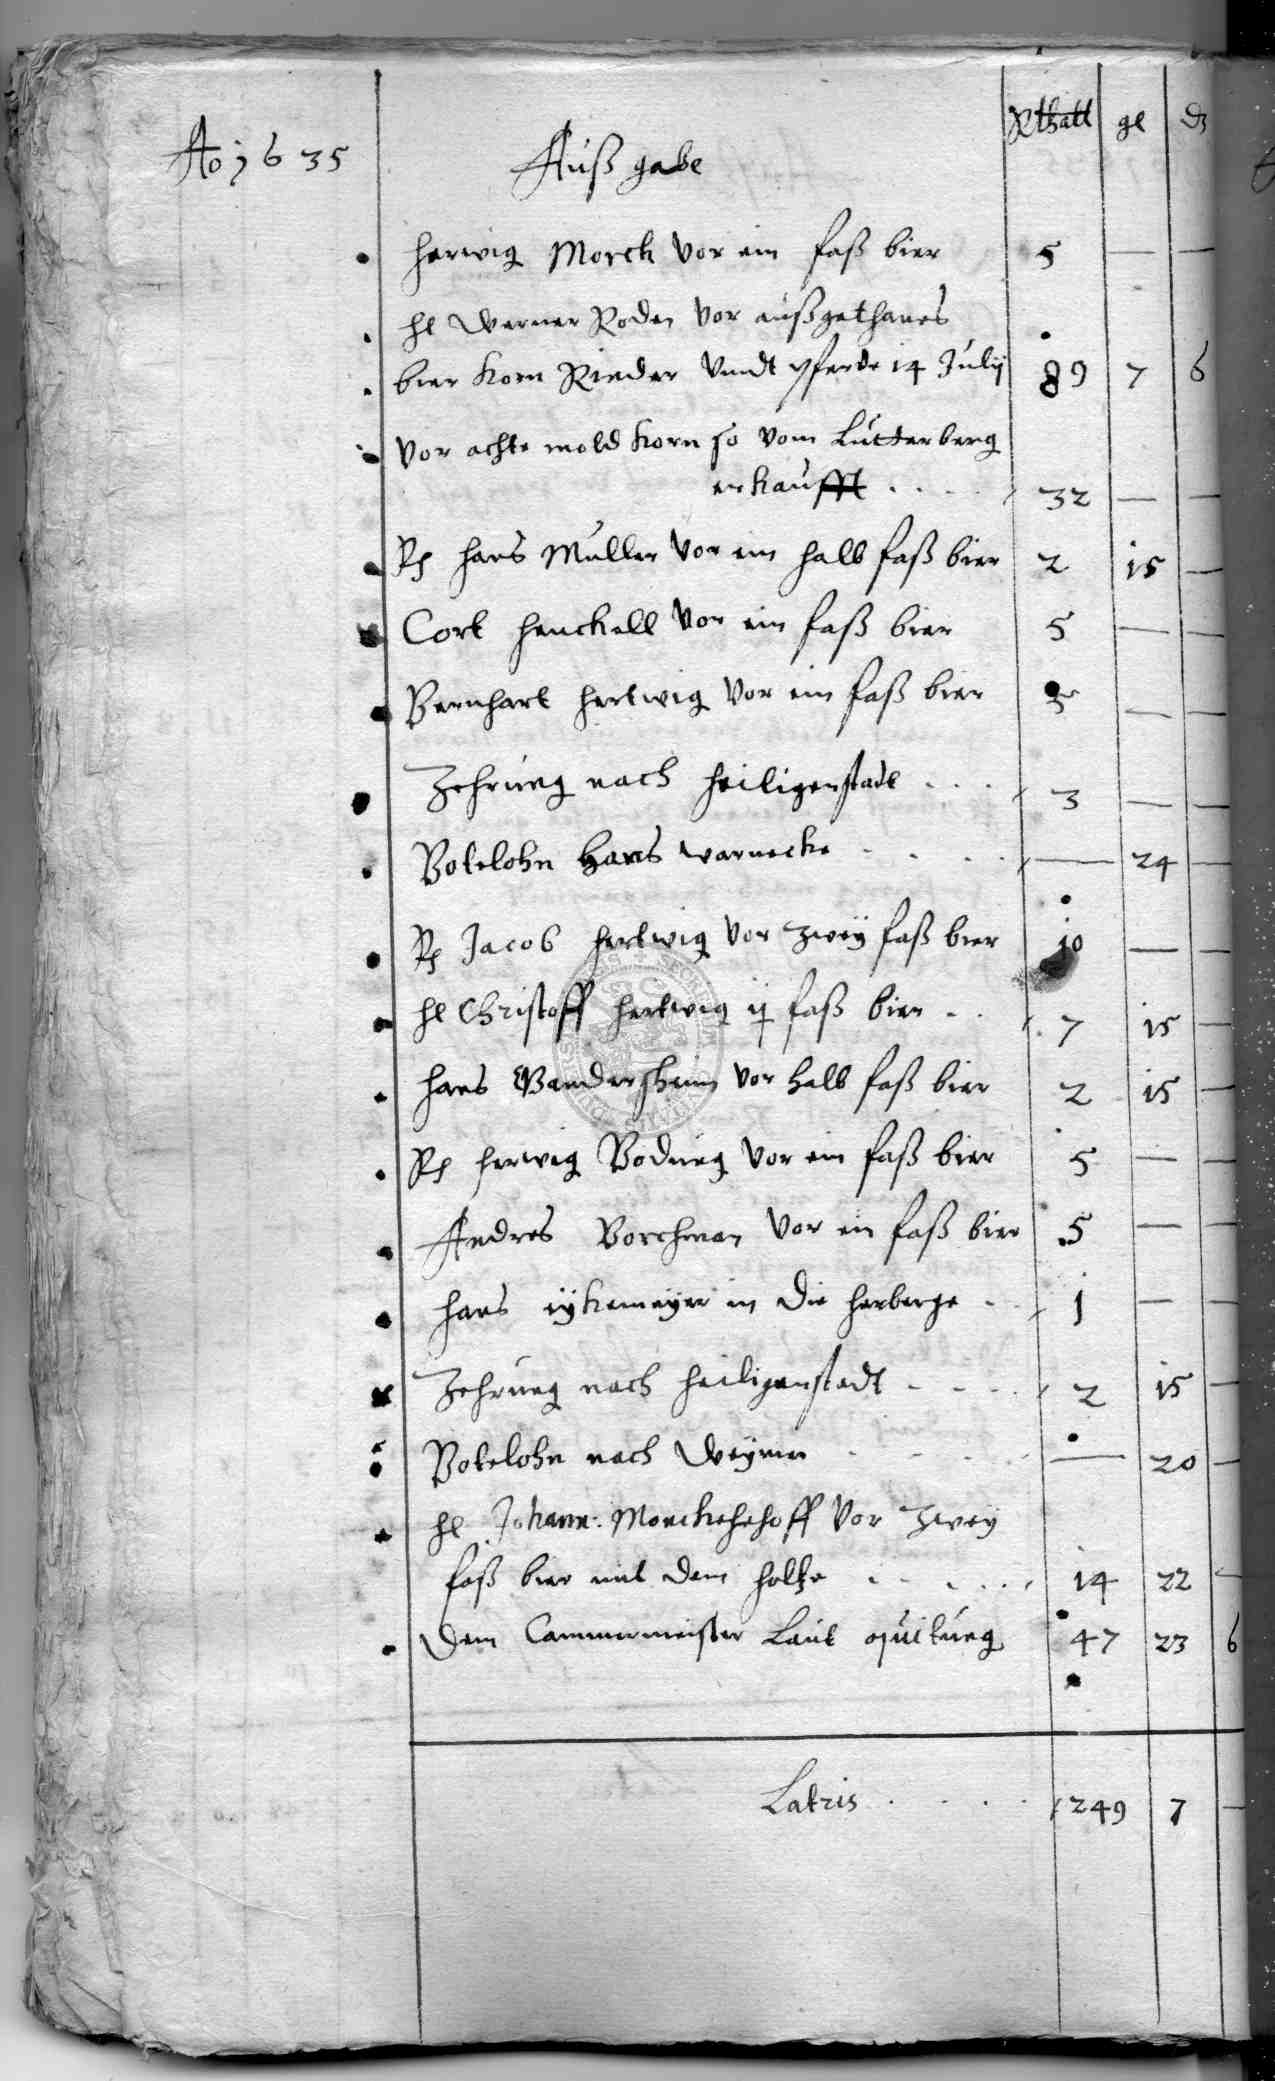 Rthall gl d
Ao 1635 Außgabe
herwig Morck vor ein faß bier 5 — —
hl Werner Roden vor außgethanes
bier korn Rinder vundt pferde 14 Julij 89 7 6
vor achte mold korn so vom Lutterberg
erkaufft . . . . 32 — —
hans Müller vor ein halb faß bier 2 15 —
Cort henckell vor ein faß bier 5 — —
Bernhart hertwig vor ein faß bier 5 — —
Zehrung nach heiligenstadt . . . 3 — —
Botelohn hans warnecke . . . . — 24 —
Jacob hertwig vor zweÿ faß bier 10 — —
hl Christoff hertwig ij faß bier . . 7 15 —
hans Gandersheim vor halb faß bier 2 15 —
herwig Bodung vor ein faß bier 5 — —
Andres Borchman vor ein faß bier 5 — —
hans in die herberge . . 1 — —
Zehrung nach heiligenstadt . . . . 2 15 —
Botelohn nach Weÿmer . . . . — 20 —
hl Johann: vor zweÿ
faß bier mit dem holtze . . . . . 14 22 —
dem Cammermeister Laut quitung 47 23 6
Latris . . . . 249 7 —